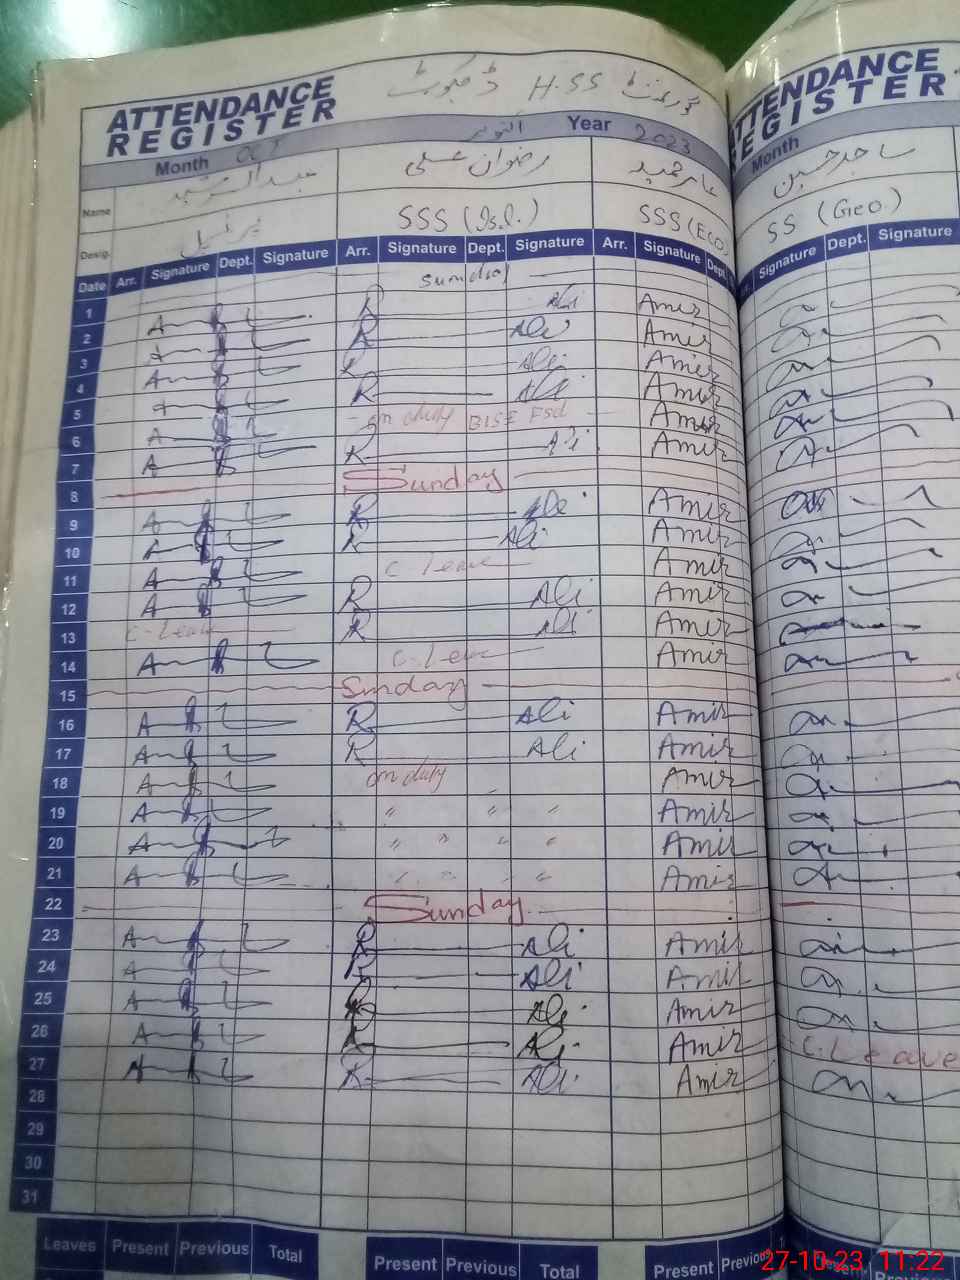 گورنمنٹ H.SS ڈجکوٹ
ATTENDANCE
REGISTER
Month OCT اکتوبر Year 2023
Name عبدالرشید رضوان علی عامر حمید
Desig. پرنسپل SSS (Isl.) SSS (Eco)
Date Arr. Signature Dept. Signature Arr. Signature Dept. Signature Arr. Signature Dept.
1 Sunday
2 A R Ali Amir
3 A R Ali Amir
4 A R Ali Amir
5 A R Ali Amir
6 A on duty BISE Fsd Amir
7 A R Ali Amir
8 Sunday
9 A R Ali Amir
10 A R Ali Amir
11 A C. Leave Amir
12 A R Ali Amir
13 C. Leave R Ali Amir
14 A C. Leave Amir
15 Sunday
16 A R Ali Amir
17 A R Ali Amir
18 A on duty Amir
19 A " " " Amir
20 A " " " " Amir
21 A " " " " Amir
22 Sunday
23 A R Ali Amir
24 A R Ali Amir
25 A R Ali Amir
26 A R Ali Amir
27 A R Ali Amir
28
29
30
31
Leaves Present Previous Total Present Previous Total Present Previous
ATTENDANCE
REGISTER
Month
ساجد حسین
SS (Geo.)
Signature Dept. Signature
C. Leave
Present Previous
27-10-23 11:22